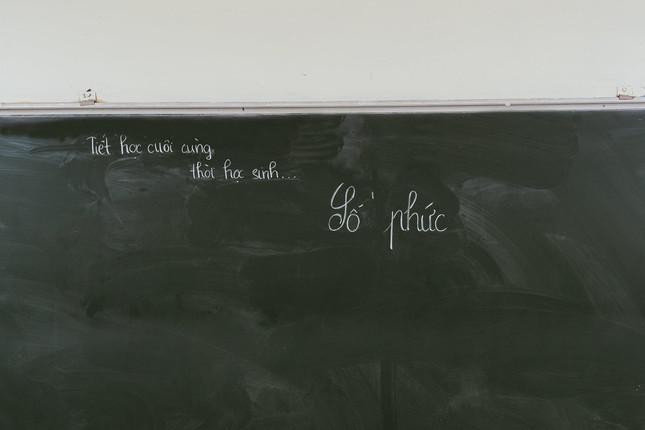 Tiết học cuối cùng
thời học sinh...
Số phức